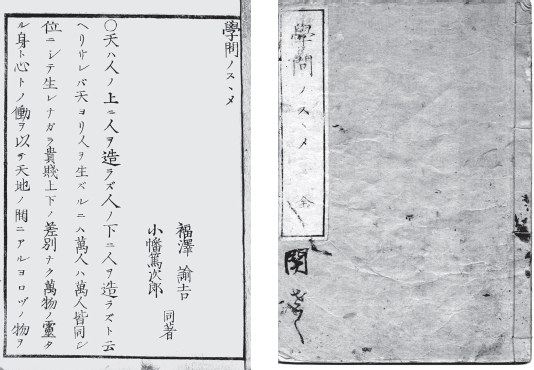 學問ノスヽメ
福澤諭吉
小幡篤次郎
同著
〇天ハ人ノ上ニ人ヲ造ラズ人ノ下ニ人ヲ造ラズト云
ヘリサレバ天ヨリ人ヲ生ズルニハ萬人ハ萬人皆同ジ
位ニシテ生レナガラ貴賤上下ノ差別ナク萬物ノ靈タ
ル身ト心トノ働ヲ以テ天地ノ間ニアルヨロヅノ物ヲ
學問ノスヽメ 全